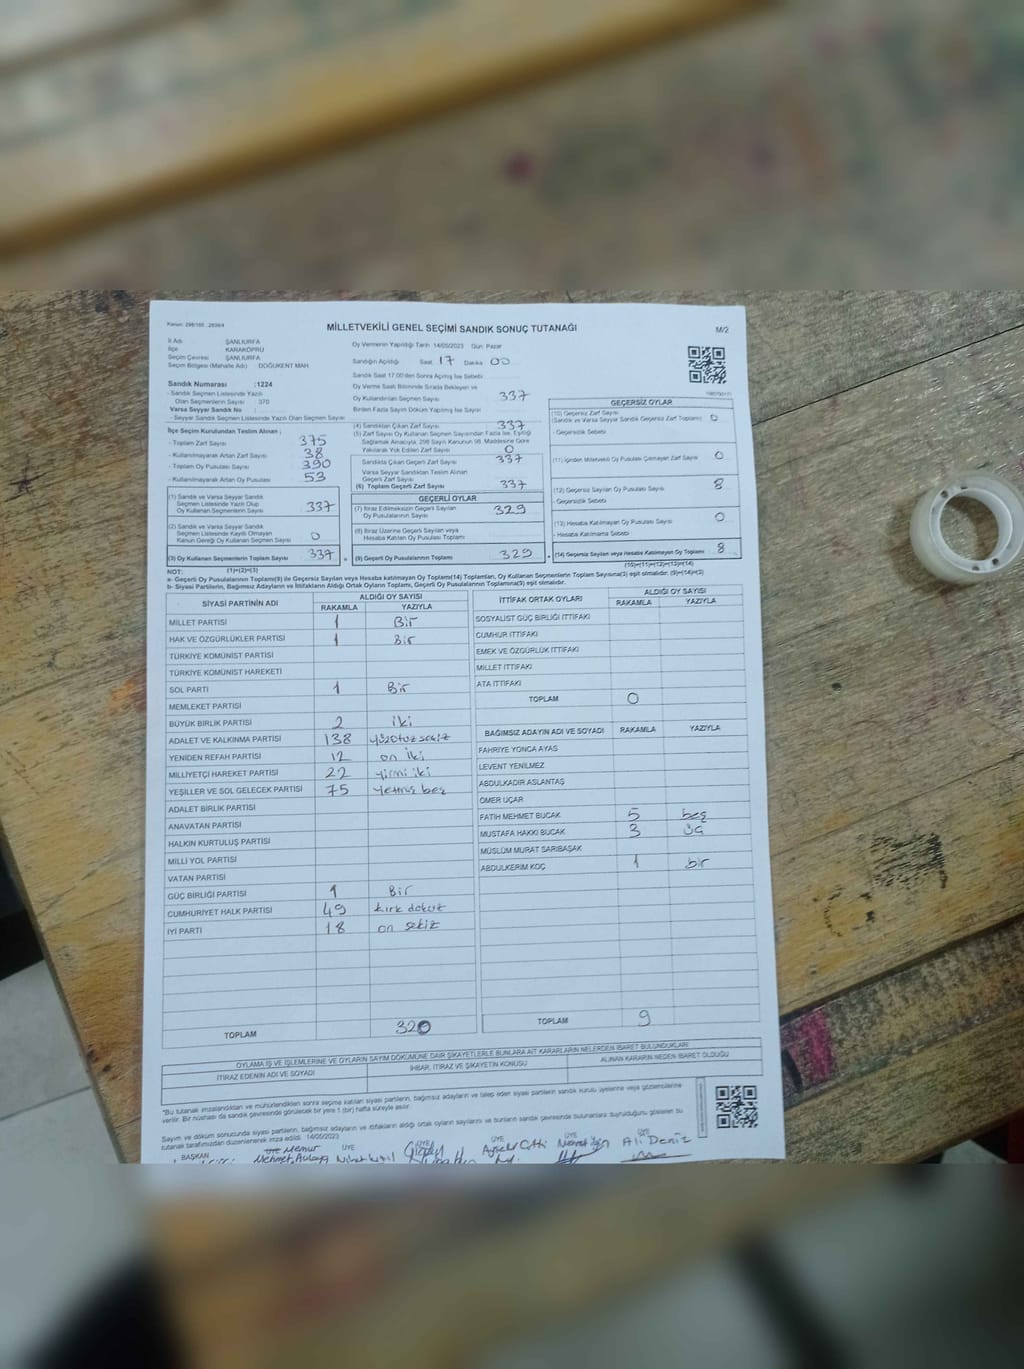 Kanun: 298/105 , 2839/4
MİLLETVEKİLİ GENEL SEÇİMİ SANDIK SONUÇ TUTANAĞI
M/2
İl Adı ŞANLIURFA
İlçe KARAKÖPRÜ
Seçim Çevresi ŞANLIURFA
Seçim Bölgesi (Mahalle Adı) DOĞUKENT MAH.
Sandık Numarası :1224
- Sandık Seçmen Listesinde Yazılı
Olan Seçmenlerin Sayısı : 370
Varsa Seyyar Sandık No :
- Seyyar Sandık Seçmen Listesinde Yazılı Olan Seçmen Sayısı
Oy Vermenin Yapıldığı Tarih 14/05/2023 Gün: Pazar
Sandığın Açıldığı Saat 17 Dakika 00
Sandık Saat 17:00'den Sonra Açılmış İse Sebebi
Oy Verme Saati Bitiminde Sırada Bekleyen ve
Oyu Kullandırılan Seçmen Sayısı 337
Birden Fazla Sayım Döküm Yapılmış İse Sayısı
İlçe Seçim Kurulundan Teslim Alınan ;
- Toplam Zarf Sayısı 375
- Kullanılmayarak Artan Zarf Sayısı 38
- Toplam Oy Pusulası Sayısı 390
- Kullanılmayarak Artan Oy Pusulası 53
(1) Sandık ve Varsa Seyyar Sandık
Seçmen Listesinde Yazılı Olup
Oy Kullanan Seçmenlerin Sayısı 337
(2) Sandık ve Varsa Seyyar Sandık
Seçmen Listesinde Kayıtlı Olmayan
Kanun Gereği Oy Kullanan Seçmen Sayısı 0
(3) Oy Kullanan Seçmenlerin Toplam Sayısı 337
(1)+(2)=(3)
(4) Sandıktan Çıkan Zarf Sayısı 337
(5) Zarf Sayısı Oy Kullanan Seçmen Sayısından Fazla İse, Eşitliği
Sağlamak Amacıyla, 298 Sayılı Kanunun 98. Maddesine Göre
Yakılarak Yok Edilen Zarf Sayısı 0
Sandıkta Çıkan Geçerli Zarf Sayısı 337
Varsa Seyyar Sandıktan Teslim Alınan
Geçerli Zarf Sayısı
(6) Toplam Geçerli Zarf Sayısı 337
GEÇERLİ OYLAR
(7) İtiraz Edilmeksizin Geçerli Sayılan
Oy Pusulalarının Sayısı 329
(8) İtiraz Üzerine Geçerli Sayılan veya
Hesaba Katılan Oy Pusulası Toplamı
= (9) Geçerli Oy Pusulalarının Toplamı 329
GEÇERSİZ OYLAR
(10) Geçersiz Zarf Sayısı
(Sandık ve Varsa Seyyar Sandık Geçersiz Zarf Toplamı) 0
- Geçersizlik Sebebi
(11) İçinden Milletvekili Oy Pusulası Çıkmayan Zarf Sayısı 0
(12) Geçersiz Sayılan Oy Pusulası Sayısı 8
- Geçersizlik Sebebi
(13) Hesaba Katılmayan Oy Pusulası Sayısı 0
- Hesaba Katılmama Sebebi
+ (14) Geçersiz Sayılan veya Hesaba Katılmayan Oy Toplamı 8
(10)+(11)+(12)+(13)=(14)
NOT:
a- Geçerli Oy Pusulalarının Toplamı(9) ile Geçersiz Sayılan veya Hesaba katılmayan Oy Toplamı(14) Toplamları, Oy Kullanan Seçmenlerin Toplam Sayısına(3) eşit olmalıdır. (9)+(14)=(3)
b- Siyasi Partilerin, Bağımsız Adayların ve İttifakların Aldığı Ortak Oyların Toplamı, Geçerli Oy Pusulalarının Toplamına(9) eşit olmalıdır.
SİYASİ PARTİNİN ADI ALDIĞI OY SAYISI
RAKAMLA YAZIYLA
MİLLET PARTİSİ 1 Bir
HAK VE ÖZGÜRLÜKLER PARTİSİ 1 Bir
TÜRKİYE KOMÜNİST PARTİSİ
TÜRKİYE KOMÜNİST HAREKETİ
SOL PARTİ 1 Bir
MEMLEKET PARTİSİ
BÜYÜK BİRLİK PARTİSİ 2 iki
ADALET VE KALKINMA PARTİSİ 138 yüzotuz sekiz
YENİDEN REFAH PARTİSİ 12 on iki
MİLLİYETÇİ HAREKET PARTİSİ 22 yirmi iki
YEŞİLLER VE SOL GELECEK PARTİSİ 75 yetmiş beş
ADALET BİRLİK PARTİSİ
ANAVATAN PARTİSİ
HALKIN KURTULUŞ PARTİSİ
MİLLİ YOL PARTİSİ
VATAN PARTİSİ
GÜÇ BİRLİĞİ PARTİSİ 1 Bir
CUMHURİYET HALK PARTİSİ 49 kırk dokuz
İYİ PARTİ 18 on sekiz
TOPLAM 320
İTTİFAK ORTAK OYLARI ALDIĞI OY SAYISI
RAKAMLA YAZIYLA
SOSYALİST GÜÇ BİRLİĞİ İTTİFAKI
CUMHUR İTTİFAKI
EMEK VE ÖZGÜRLÜK İTTİFAKI
MİLLET İTTİFAKI
ATA İTTİFAKI
TOPLAM 0
BAĞIMSIZ ADAYIN ADI VE SOYADI RAKAMLA YAZIYLA
FAHRİYE YONCA AYAS
LEVENT YENİLMEZ
ABDULKADİR ASLANTAŞ
ÖMER UÇAR
FATİH MEHMET BUCAK 5 beş
MUSTAFA HAKKI BUCAK 3 üç
MÜSLÜM MURAT SARIBAŞAK
ABDULKERİM KOÇ 1 bir
TOPLAM 9
OYLAMA İŞ VE İŞLEMLERİNE VE OYLARIN SAYIM DÖKÜMÜNE DAİR ŞİKAYETLERLE BUNLARA AİT KARARLARIN NELERDEN İBARET BULUNDUKLARI
İTİRAZ EDENİN ADI VE SOYADI İHBAR, İTİRAZ VE ŞİKAYETİN KONUSU ALINAN KARARIN NEDEN İBARET OLDUĞU
"Bu tutanak imzalandıktan ve mühürlendikten sonra seçime katılan siyasi partilerin, bağımsız adayların ve talep eden siyasi partilerin sandık kurulu üyelerine veya gözlemcilerine
verilir. Bir nüshası da sandık çevresinde görülecek bir yere 1 (bir) hafta süreyle asılır.
Sayım ve döküm sonucunda siyasi partilerin, bağımsız adayların ve ittifakların aldığı ortak oyların sayılarını ve bunların sandık çevresinde bulunanlara duyurulduğunu gösteren bu
tutanak tarafımızdan düzenlenerek imza edildi. 14/05/2023
BAŞKAN ÜYE Memur ÜYE ÜYE ÜYE ÜYE ÜYE
Ali Deniz